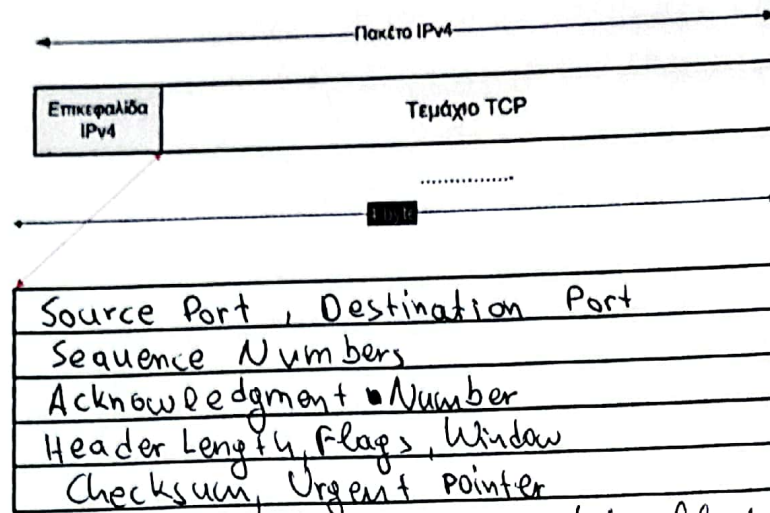 Πακέτο IPv4
Επικεφαλίδα
IPv4
Τεμάχιο TCP
................
Source Port, Destination Port
Sequence Numbers
Acknowledgment Number
Header Length, Flags, Window
Checksum, Urgent pointer